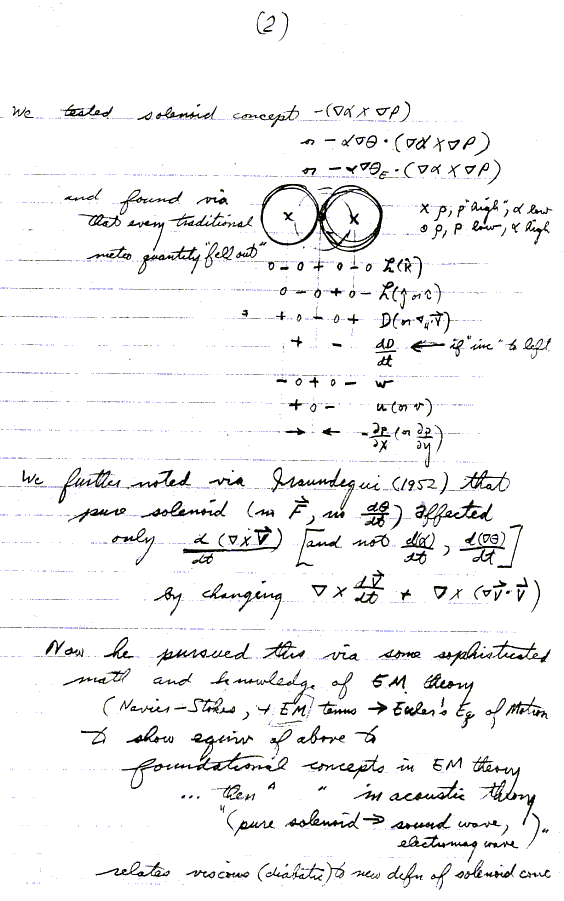 (2)
We tested solenoid concept -(∇α × ∇P)
or -α∇θ · (∇α × ∇P)
or -α∇θ_E · (∇α × ∇P)
and found via
that every traditional
meteo quantity "fell out"
x x
x ρ, p "high", α low
o ρ, P low, α high
o - o + o - o ζ(k̂)
o - o + o - ζ(ĵ or î)
+ o - o + D(or ∇_H·V⃗)
+ - dD/dt ← if "inc" to left
- o + o - w
+ o - u (or v)
→ ← -∂p/∂x (or ∂p/∂y)
We further noted via (1952) that
pure solenoid (no F⃗, no dθ/dt) affected
only d(∇×V⃗)/dt [and not d(α)/dt, d(∇θ)/dt]
by changing ∇ × dV⃗/dt + ∇ × (∇V⃗·V⃗)
Now he pursued this via some sophisticated
math and knowledge of EM theory
(Navier-Stokes, + EM terms → Euler's Eq of Motion
to show equiv of above to
foundational concepts in EM theory
... then " " in acoustic theory
"(pure solenoid → sound wave,
electromag wave)"
relates viscous (diabatic) to new defn of solenoid conc